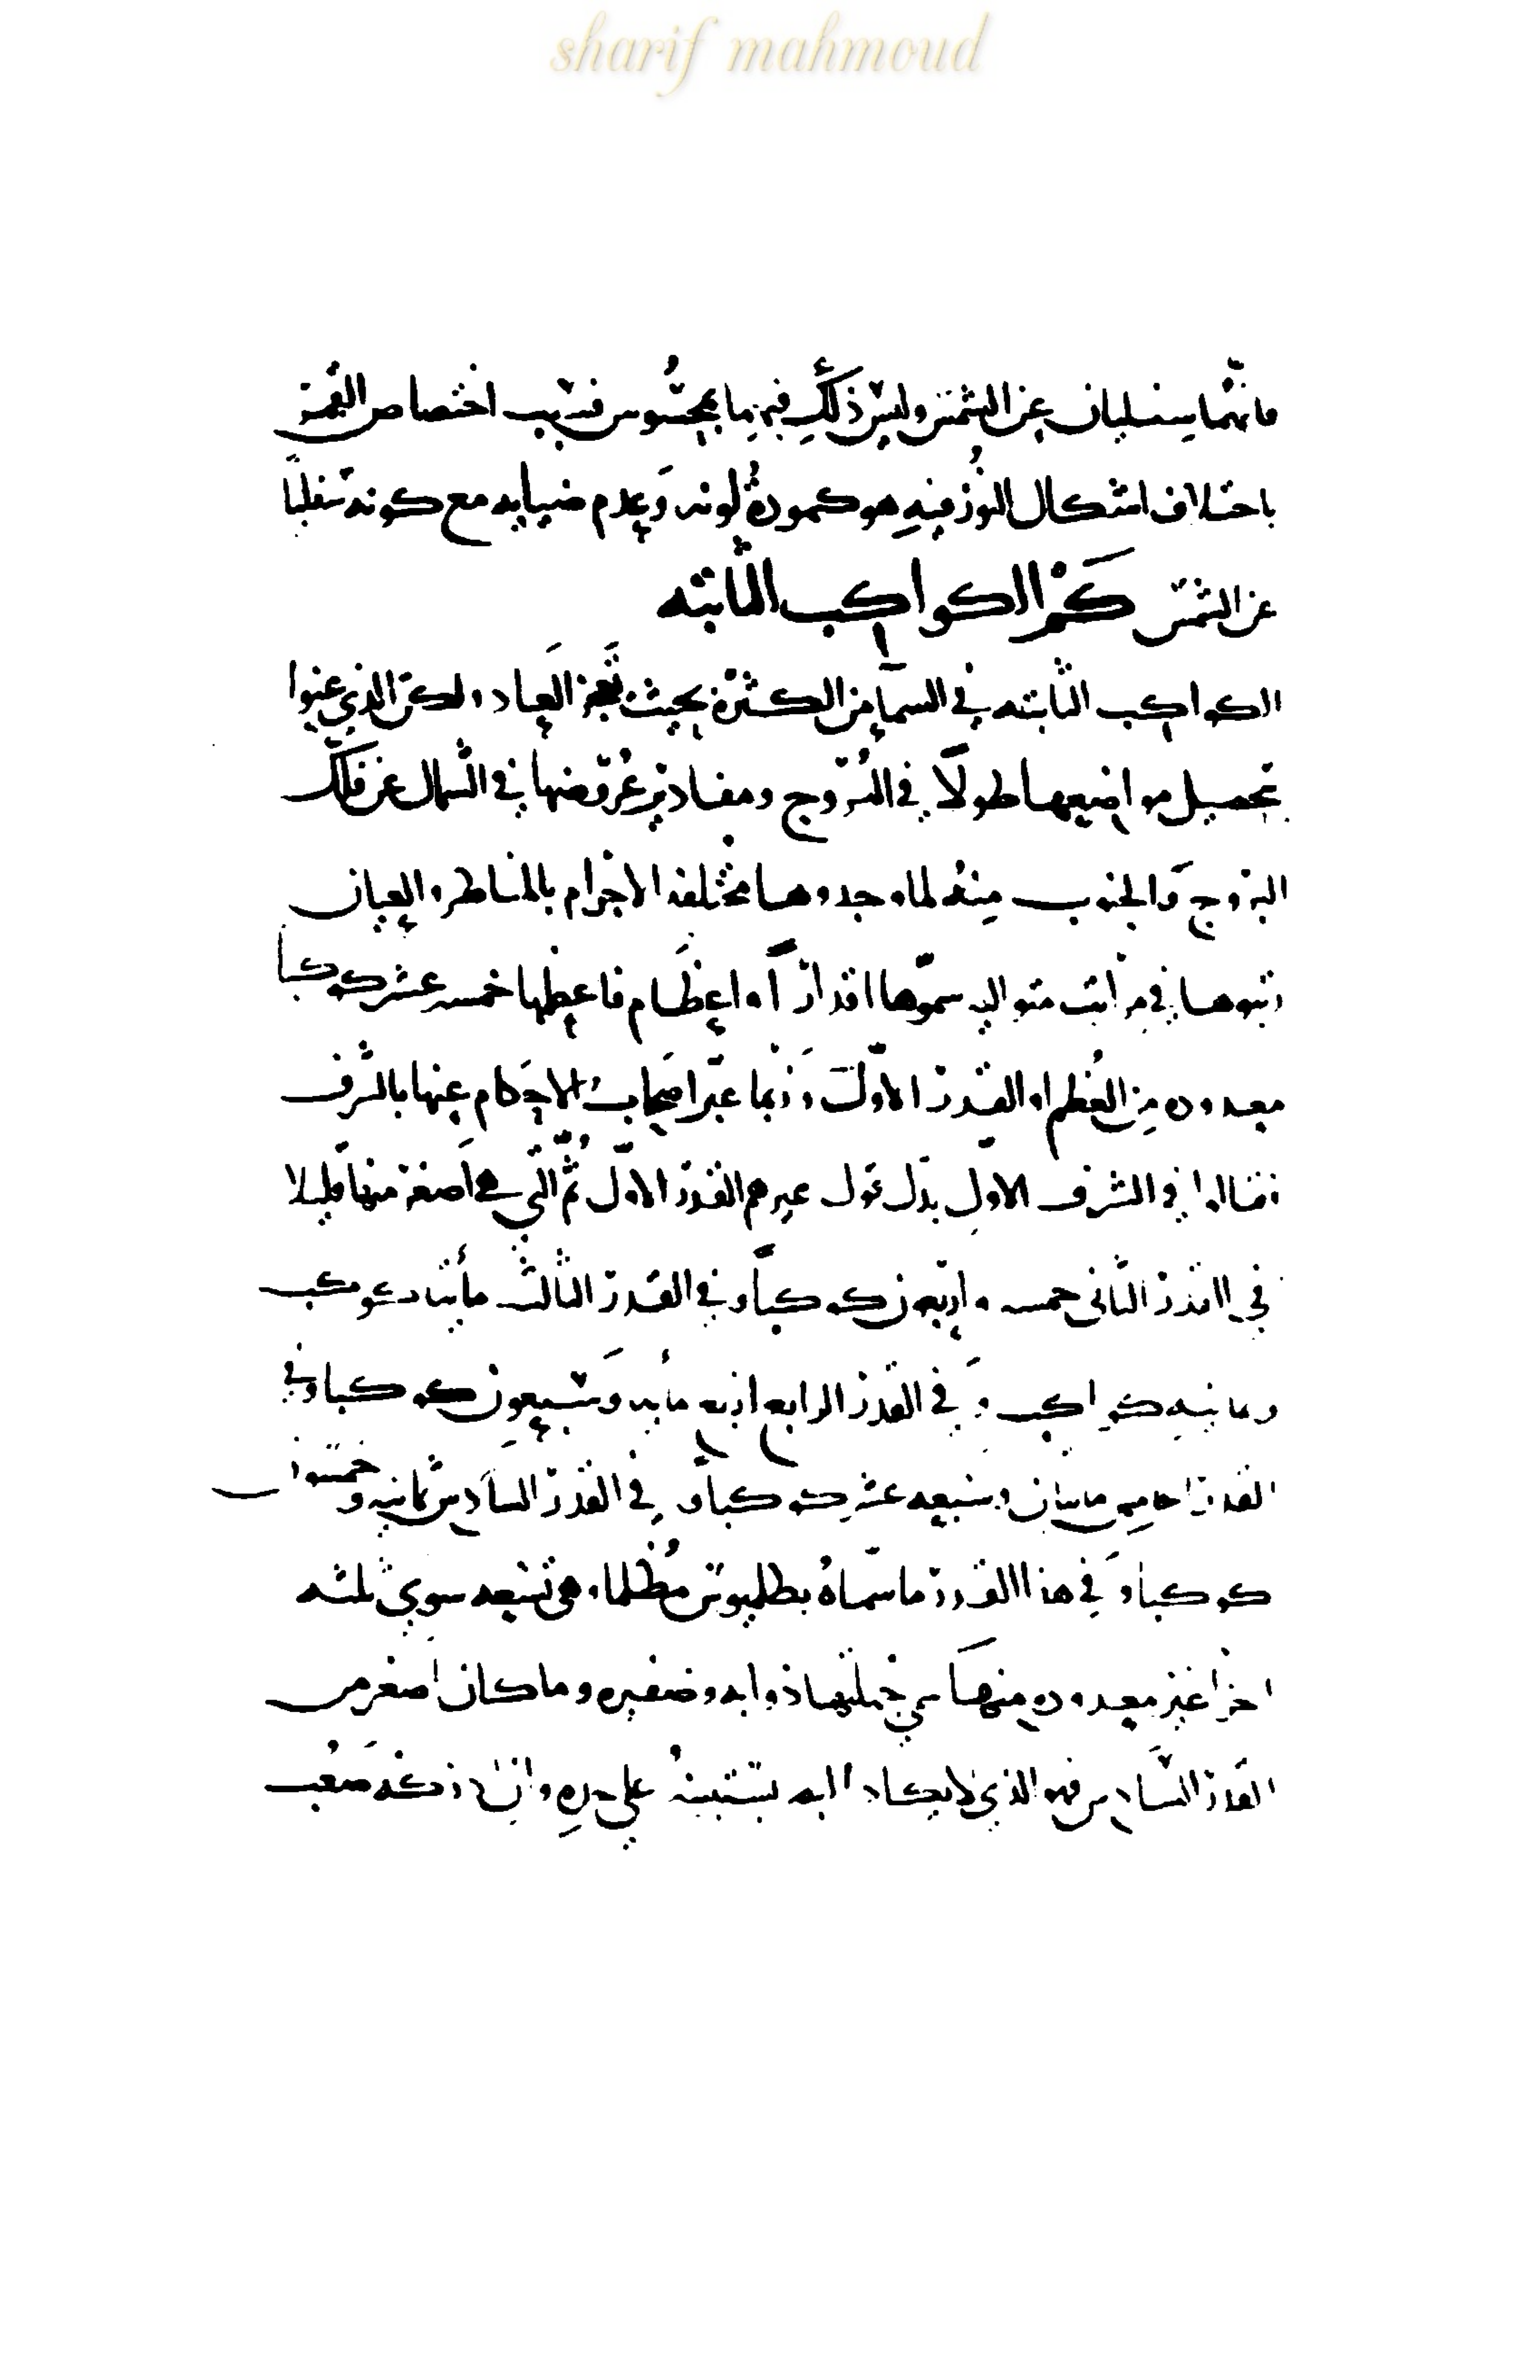 sharif mahmoud
فانهما سفليان عن الشمس وليس ذلك فيهما بمحسوس فسبب اختصاص القمر
باختلاف اشكال النور فيه هو كمودة لونه وعدم ضيايه مع كونه سفليا
عن الشمس كم الكواكب الثابته
الكواكب الثابته في السمآ من الكثرة بحيث تعجز العباد ولكن الذي عنوا
تحصيل مواضعها طولاً في البروج ومقادير عروضها في الشمال عن فلك
البروج والجنوب منه لما وجدوها مختلفه الاجرام بالمناظر والعيان
رتبوها في مراتب متواليه سموها اقداراً واعظام فاعظمها خمسه عشر كوكبا
معدوده من العظم او القدر الاول وربما عبر اصحاب الاحكام عنها بالشرف
فقالوا في الشرف الاول بدل قول غيرهم القدر الاول ثم التي هي اصغر منها قليلا
في القدر الثاني خمسه واربعون كوكباً وفي القدر الثالث مأيتا كوكب
وثمانيه كواكب وفي القدر الرابع اربع مأيه وسبعون كوكبا وفي
القدر الخامس مايتان وسبعه عشر كوكباً وفي القدر السادس ثمانيه وخمسون
كوكبا وفي هذا القدر ما سماه بطلميوس مظلما وهي تسعه سوي ثلثه
اخر غير معدوده منها سمي جملتها ذوابه وضفيره وما كان اصغر من
القدر السادس فهو الذي لا يكاد البصر يستبينه علي حده وان ادركه صعب